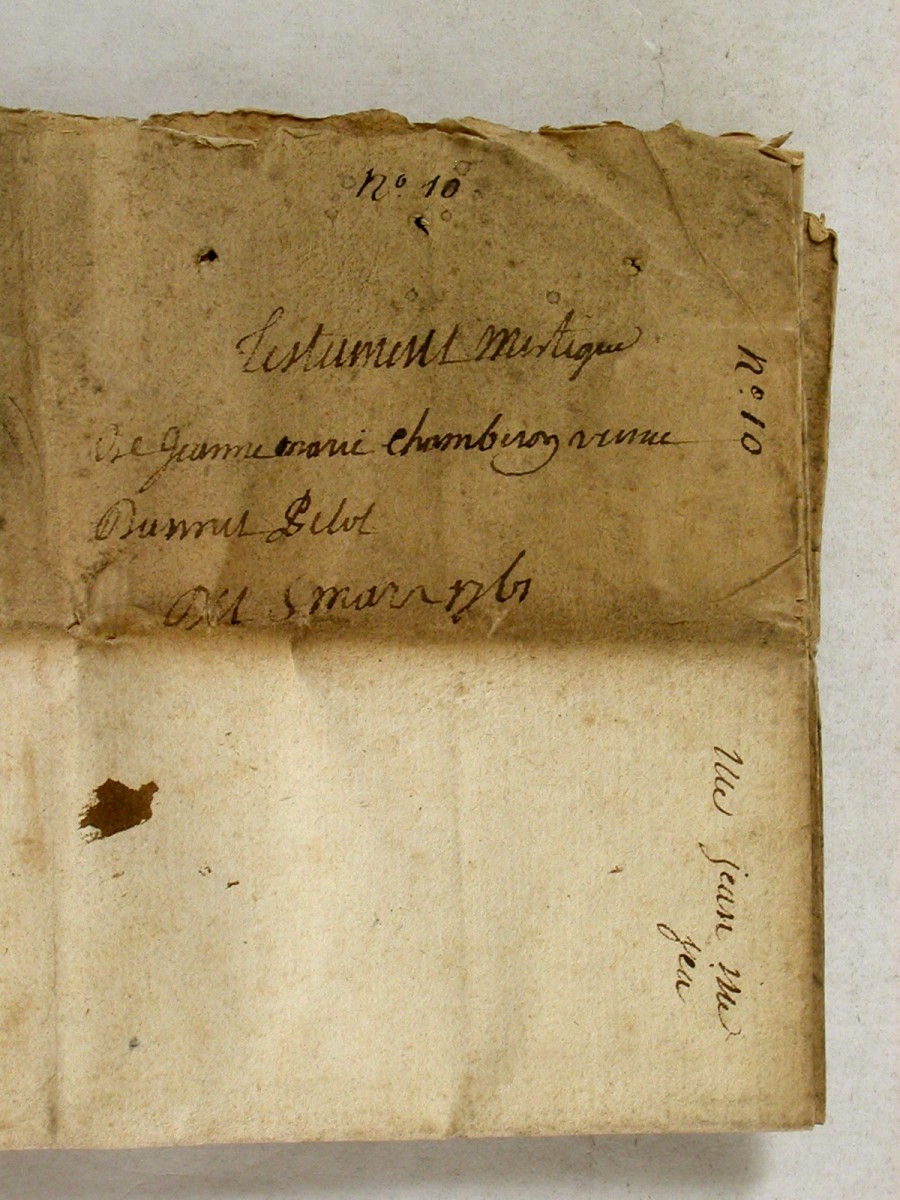 No. 10
Testament mistique
De Jeanne marie Chamberon veuve
Pelot
Du 5 mars 1761
No. 10
jean
jea